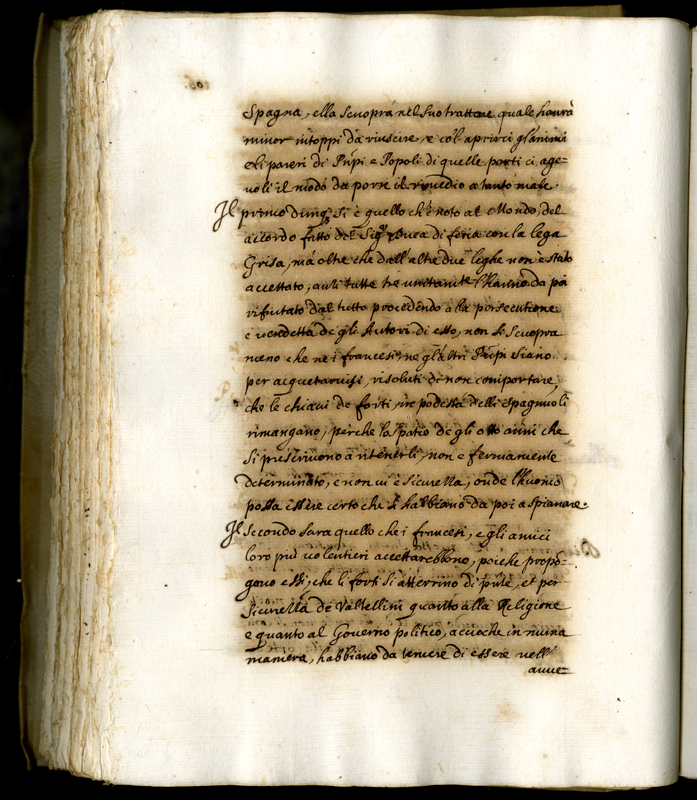 Spagna, ella scuoprà nel suo trattare quale haurà
minor intoppi da riuscire, e col' aprirci gl'animi
e li pareri di Prīpi e Popoli di quelle parti ci age=
uoli il modo da porre il rimedio a tanto male.
Il primo dunq. si è quello ch'è noto al Mondo, del
accordo fatto dal Sigr. Duca di feria con la lega
Grisa, mà oltre che dall'altre due leghe non è stato
accettato, anzi tutte tre unitamte l'hanno da poi
rifiutato dal tutto procedendo à la persecutione
e uendetta de gli Autori di esso, non si scuopra
meno che ne i francesi, ne gl'altri Prīpi siano
per acquetaruisi, risoluti di non comportare,
che le chiaui de forti, in podestà delli spagnuoli
rimangano, perche lo spatio de gli otto anni che
si prescriuono à ritenerli, non è fermamente
determinato, e non ui è sicurezza, onde l'huomo
possa essere certo che si habbiano da poi a spianare.
Il secondo sara quello che i francesi, e gli amici
loro più uolentieri accettarebbono, poiche propō-
gono essi, che li forti si atterrino di pñte, et per
sicurezza de Valtellini quanto alla Religione
e quanto al Gouerno politico, accioche in niuna
maniera, habbiano da temere di essere nell'
auue=